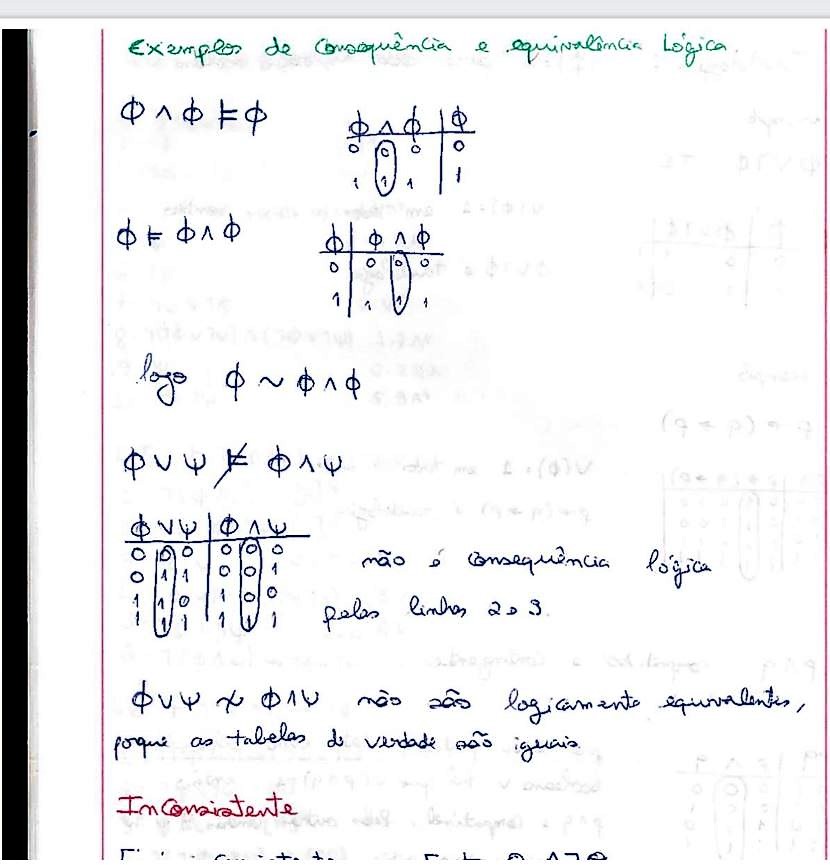 Exemplos de consequência e equivalência Lógica.
ϕ ∧ ϕ ⊨ ϕ
ϕ ∧ ϕ | ϕ
0 0 0 | 0
1 1 1 | 1
ϕ ⊨ ϕ ∧ ϕ
ϕ | ϕ ∧ ϕ
0 | 0 0 0
1 | 1 1 1
logo ϕ ~ ϕ ∧ ϕ
ϕ ∨ ψ ⊭ ϕ ∧ ψ
ϕ ∨ ψ | ϕ ∧ ψ
0 0 0 | 0 0 0
0 1 1 | 0 0 1
1 1 0 | 1 0 0
1 1 1 | 1 1 1
não é consequência lógica
pelas linhas 2 e 3.
ϕ ∨ ψ ≁ ϕ ∧ ψ não são logicamente equivalentes,
porque as tabelas de verdade não iguais.
Inconsistente